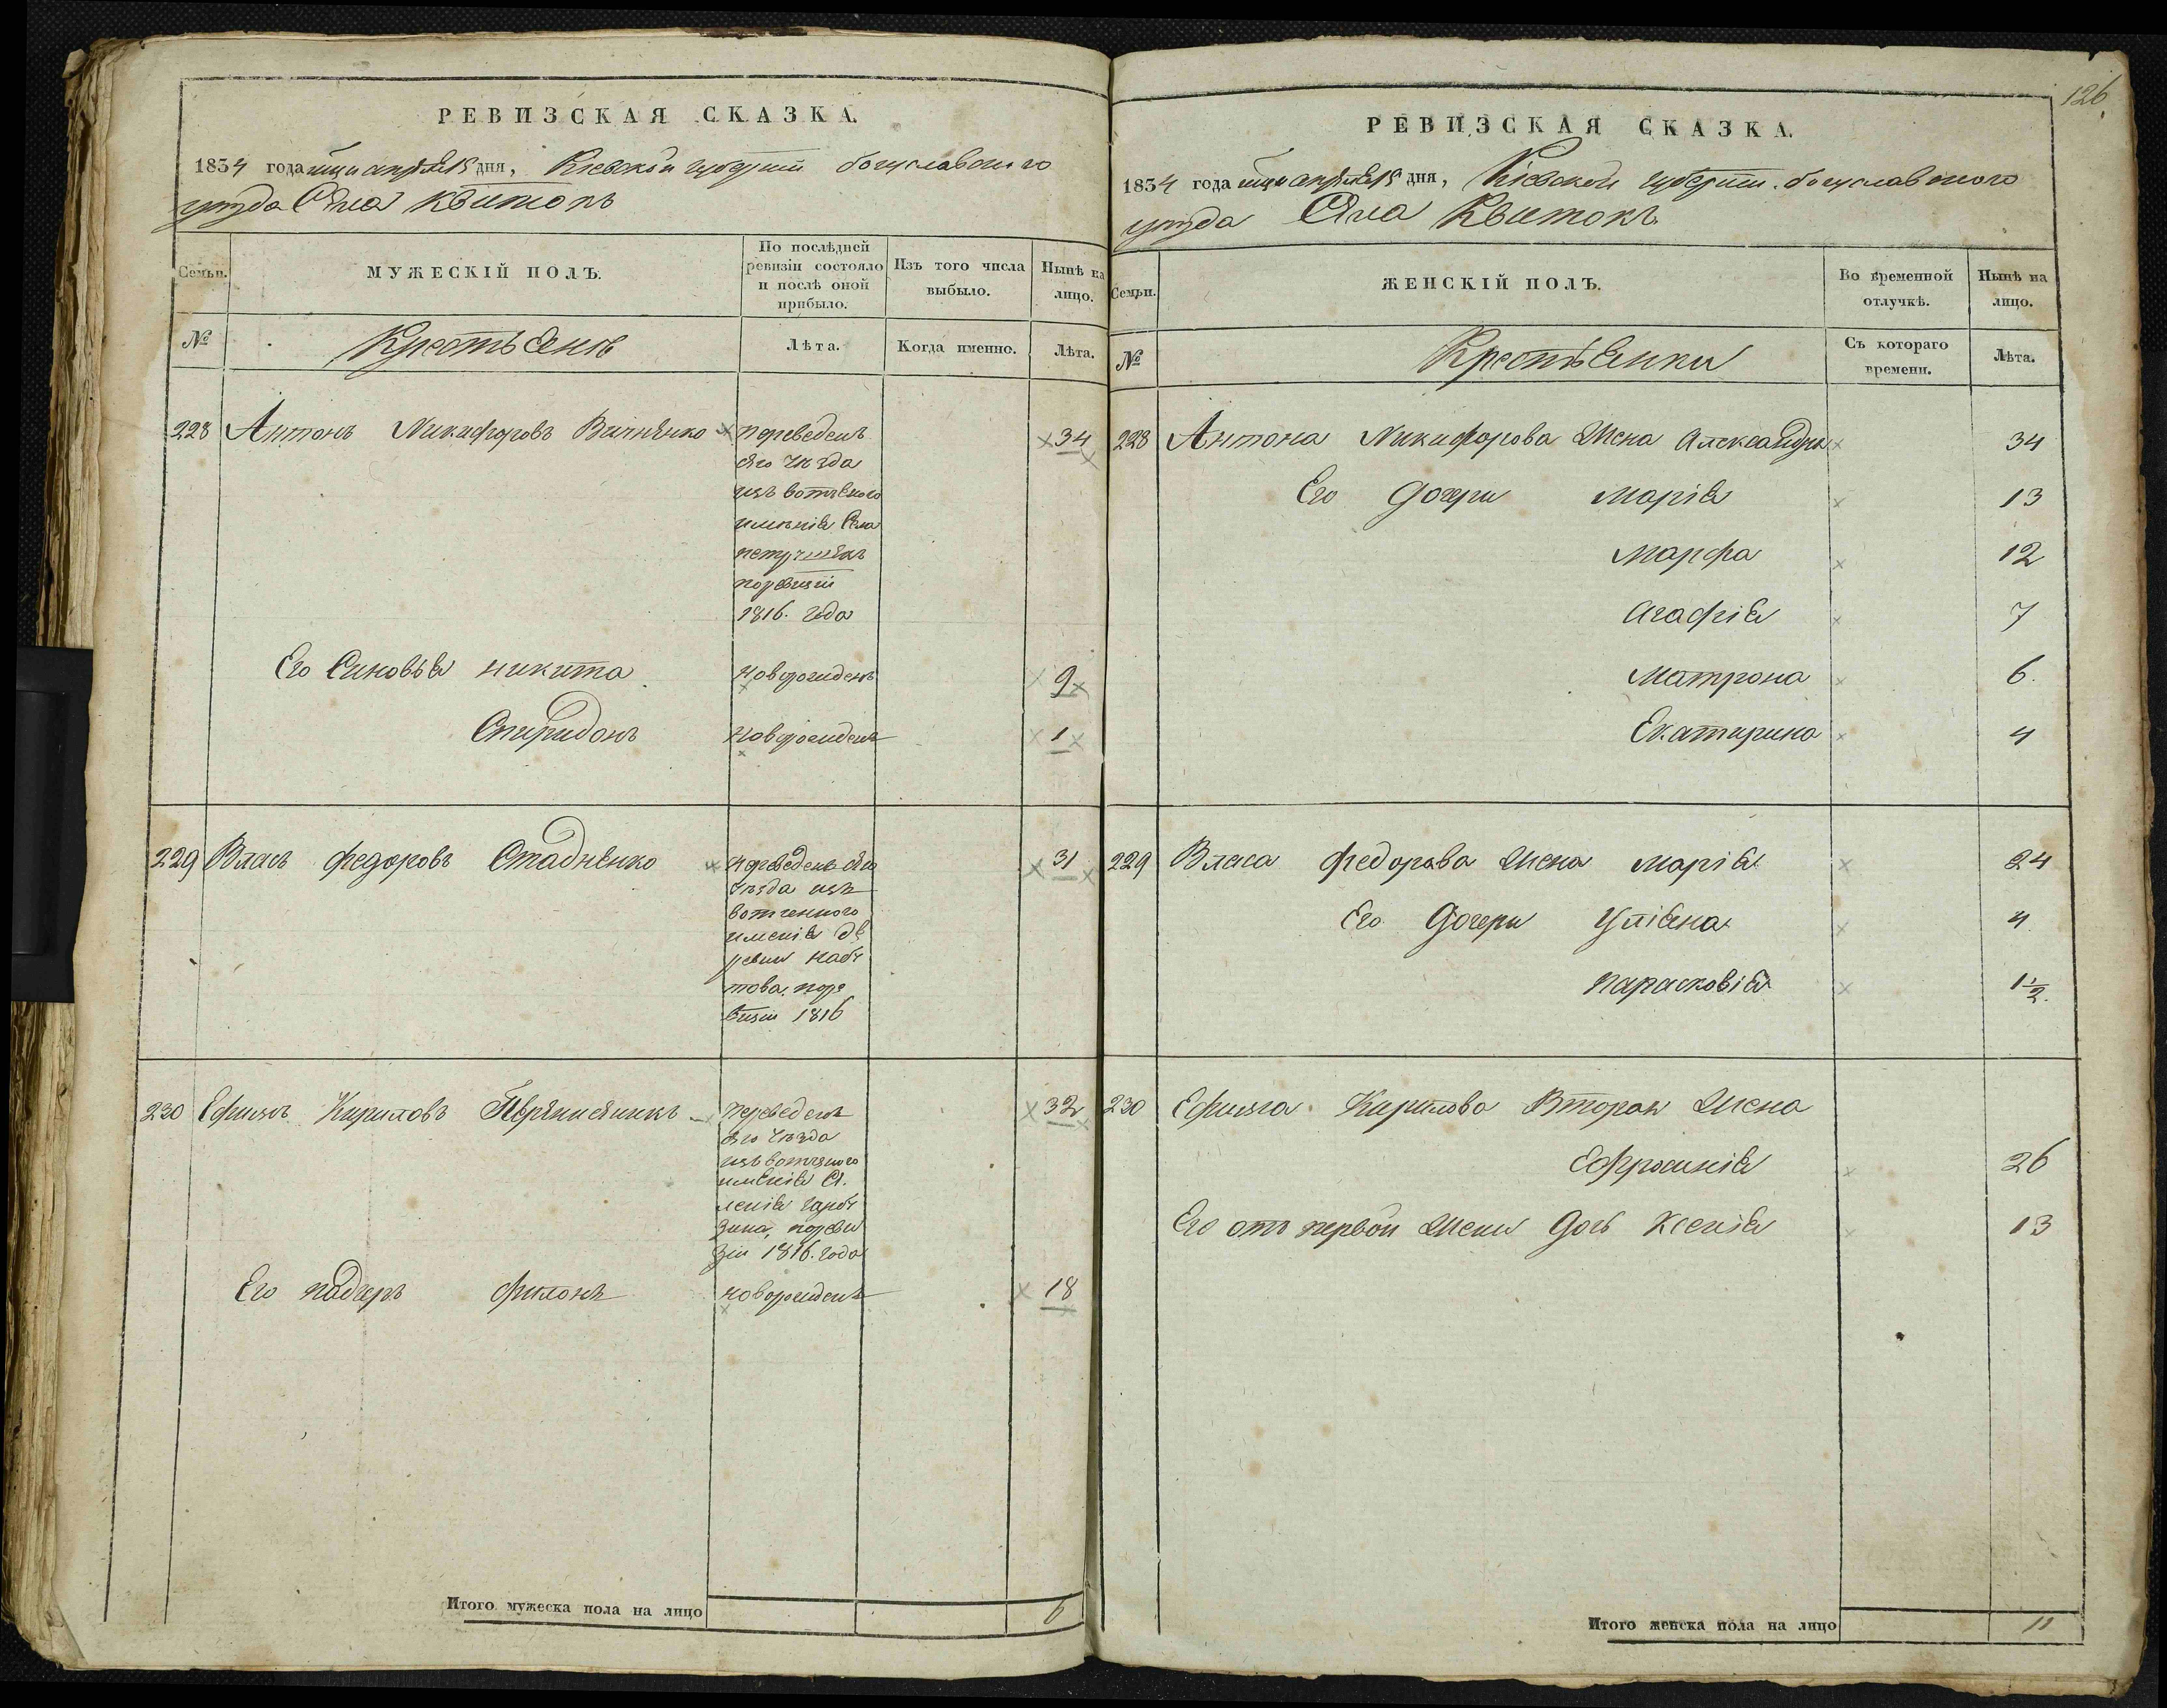 РЕВИЗСКАЯ СКАЗКА.
1834 года апреля 15 дня, Кіевской губерніи богуславского
уезда Села Квитокъ
Семьи.
МУЖЕСКІЙ ПОЛЪ.
По послѣдней ревизіи состояло и послѣ оной прибыло.
Изъ того числа выбыло.
Нынѣ на лицо.
№
Крестьяне
Лѣта.
Когда именно.
Лѣта.
228 Антонъ Никифоровъ переведенъ 34
сего уезда
изъ
именія села
поревизіи
1816. года
Его Синовья никита новорожденъ 9
Спиридонъ новорожденъ 1
229 Власъ федоровъ Стадненко переведенъ сего 31
уезда изъ
вотченного
именія де
ревни набу
това, поре
визіи 1816
230 Ефимъ Кириловъ переведенъ 32
сего уезда
изъ
именія се
ленія гарбу
зина, пореви
зіи 1816. года
Его падчеръ филонъ новорожденъ 18
Итого мужеска пола на лицо 6
126
РЕВИЗСКАЯ СКАЗКА.
1834 года апреля 15 дня, Кіевской губерніи. богуславского
уезда Села Квитокъ
Семьи.
ЖЕНСКІЙ ПОЛЪ.
Во временной отлучкѣ.
Нынѣ на лицо.
№
Крестьянки
Съ котораго времени.
Лѣта.
228 Антона Никифорова Жена Александра 34
Его Дочери Марія 13
Марфа 12
Агафія 7
Матрона 6.
Екатерина 4
229 Власа Федорова Жена Марія 24
Его Дочери Уліяна 4
Парасковія 1 1/2.
230 Ефима Кирилова Вторая Жена
Ефросинія 26
Его отъ первой Жени Дочь Ксенія 13
Итого женска пола на лицо 11